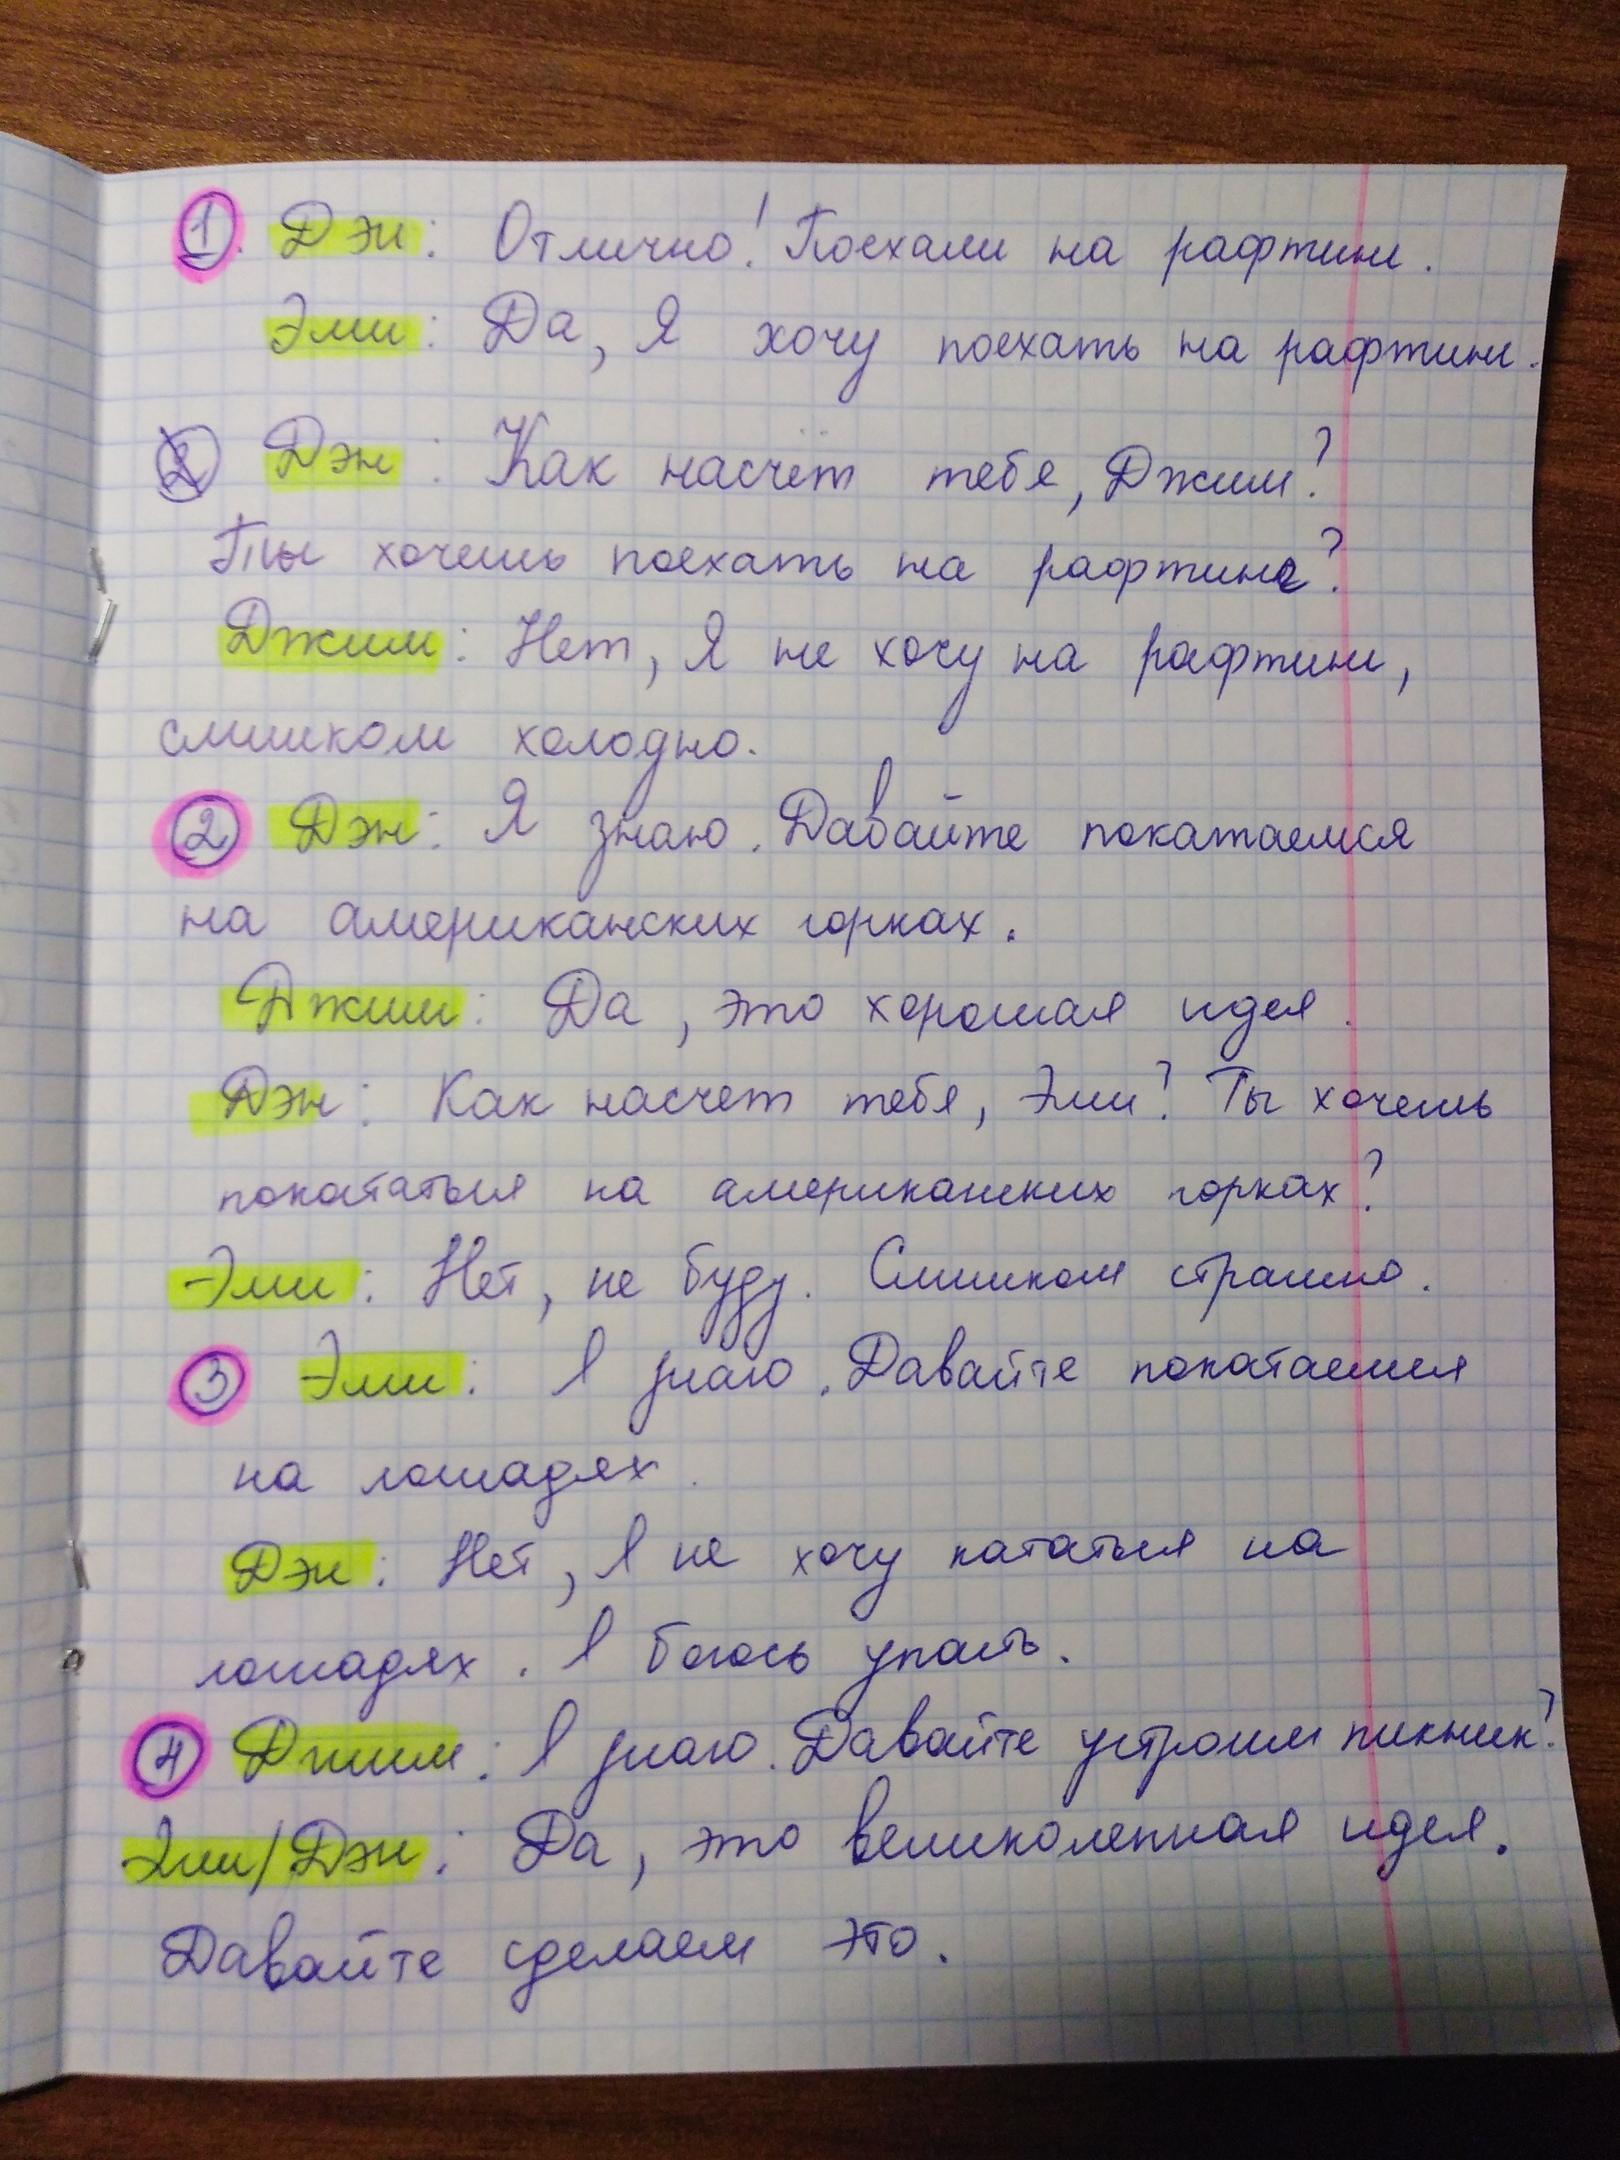 1. Дэн: Отлично! Поехали на рафтинг.
Эми: Да, Я хочу поехать на рафтинг.
2 Дэн: Как насчёт тебя, Джим?
Ты хочешь поехать на рафтинг?
Джим: Нет, Я не хочу на рафтинг,
слишком холодно.
2 Дэн: Я знаю. Давайте покатаемся
на американских горках.
Джим: Да, это хорошая идея.
Дэн: Как насчет тебя, Эми? Ты хочешь
покататься на американских горках?
Эми: Нет, не буду. Слишком страшно.
3 Эми: Я знаю. Давайте покатаемся
на лошадях.
Дэн: Нет, Я не хочу кататься на
лошадях. Я боюсь упасть.
4 Джим: Я знаю. Давайте устроим пикник!
Эми/Дэн: Да, это великолепная идея.
Давайте сделаем это.